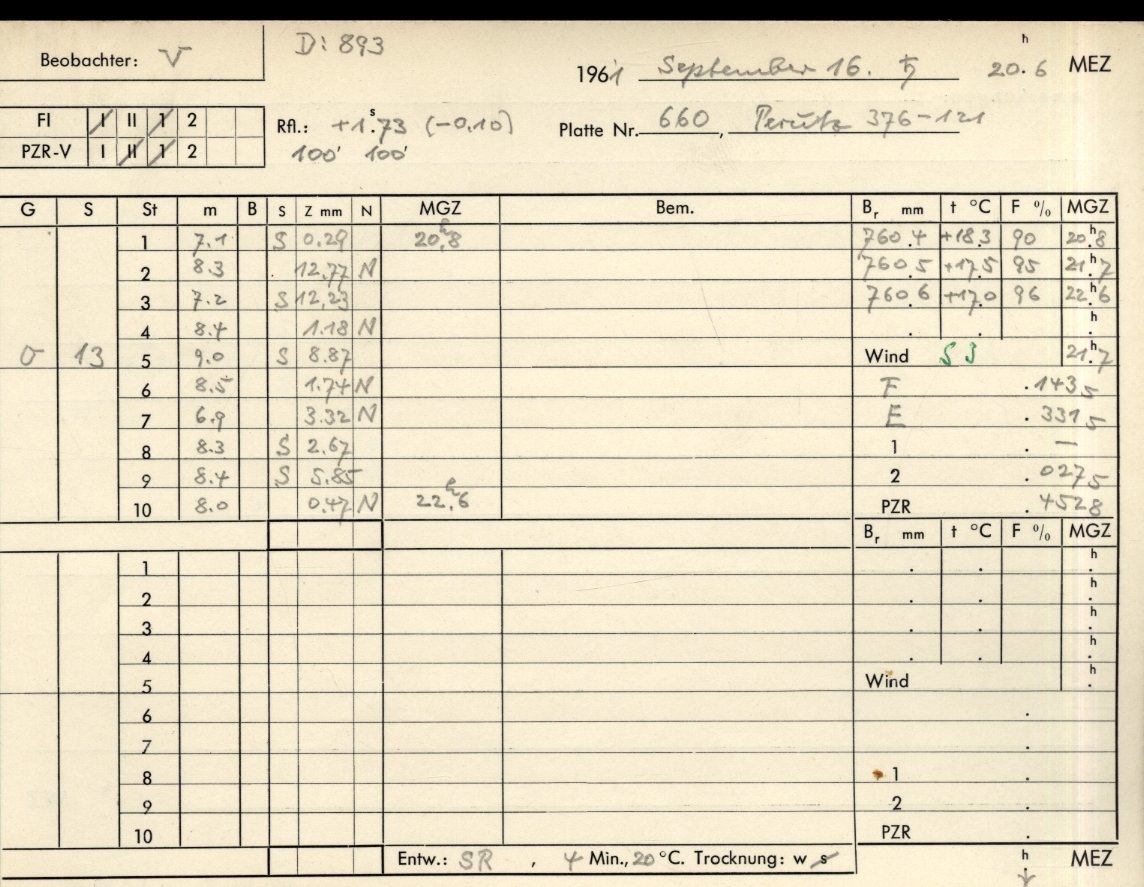 Beobachter: V D: 893 1961 September 16. ♄ 20.6 h MEZ
FI I II 1 2 Rfl.: +1.73 s (-0.10) Platte Nr. 660, Perutz 376-121
PZR-V I II 1 2 100' 100'
G S St m B S Z mm N MGZ Bem. Br mm t °C F % MGZ
1 7.1 S 0.29 20h.8 760.4 +18.3 90 20h.8
2 8.3 12.77 N 760.5 +17.5 95 21h.7
3 7.2 S 12.23 760.6 +17.0 96 22h.6
4 8.4 1.18 N . . h.
σ 13 5 9.0 S 8.87 Wind S 3 21h.7
6 8.5 1.74 N F .1435
7 6.9 3.32 N E .3315
8 8.3 S 2.67 1 . —
9 8.4 S 5.85 2 .0275
10 8.0 0.47 N 22h.6 PZR .4528
Br mm t °C F % MGZ
1 . . h.
2 . . h.
3 . . h.
4 . . h.
5 Wind h.
6 .
7 .
8 1 .
9 2 .
10 PZR .
Entw.: SR , 4 Min., 20 °C. Trocknung: w s h. MEZ